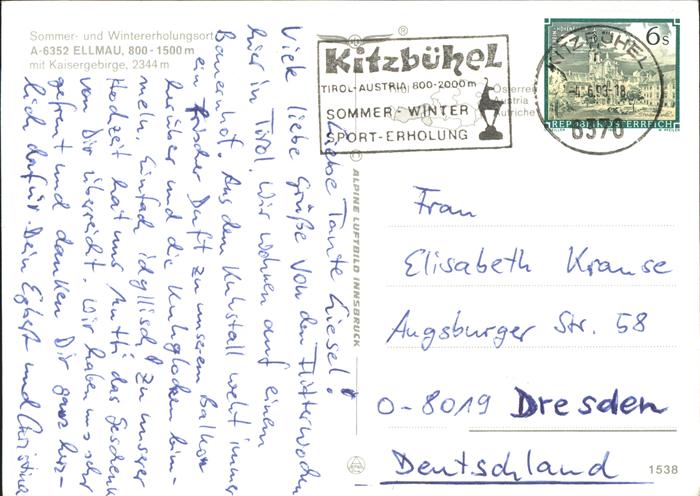 Sommer- und Wintererholungsort
A-6352 ELLMAU, 800-1500 m
mit Kaisergebirge, 2344 m
Liebe Tante Liesel!
Viele liebe Grüße von den Flitterwochen
hier in Tirol. Wir wohnen auf einem
Bauernhof. Aus dem Kuhstall weht immer
ein frischer Duft zu unserem Balkon
herüber und die Kuhglocken bim-
meln. Einfach idyllisch! Zu unserer
Hochzeit hat uns Mutti das Geschenk
von Dir überreicht. Wir haben uns sehr
gefreut und danken Dir ganz herz-
lich dafür. Dein Egbert und Christina
© ALPINE LUFTBILD INNSBRUCK
®
Kitzbühel
TIROL-AUSTRIA, 800-2000 m
SOMMER - WINTER
SPORT-ERHOLUNG
Österreich
Austria
Autriche
KITZBÜHEL
.6.93-18
6370
6 s
REPUBLIK ÖSTERREICH
Frau
Elisabeth Krause
Augsburger Str. 58
O-8019 Dresden
Deutschland
1538